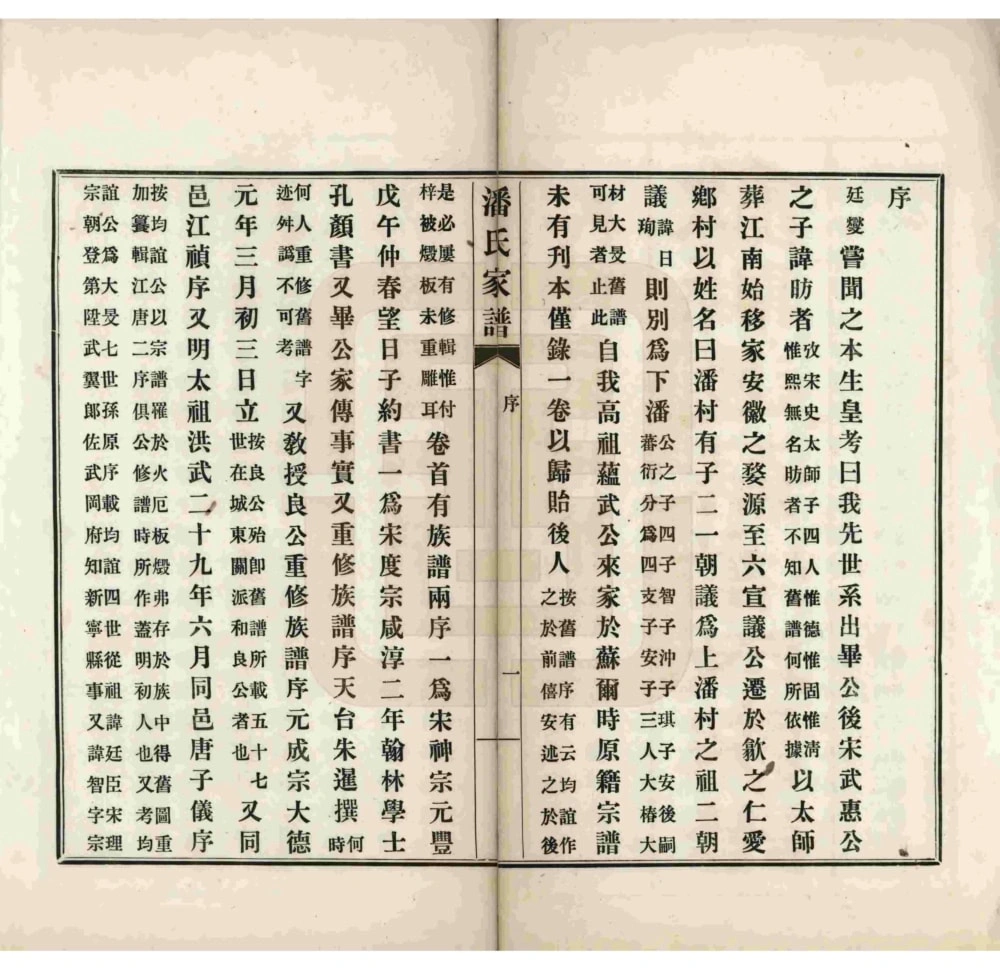 序
廷燮嘗聞之本生皇考曰我先世系出畢公後宋武惠公
之子諱昉者攷宋史太師子四人惟德惟固惟清惟熙無名昉者不知舊譜何所依據以太師
葬江南始移家安徽之婺源至六宣議公遷於歙之仁愛
鄉村以姓名曰潘村有子二一朝議為上潘村之祖二朝
議諱日珣則別為下潘公之子四子智子沖子琪子安後嗣蕃衍分為四支子安子三人大椿大
材大旻舊譜可見者止此自我高祖蘊武公來家於蘇爾時原籍宗譜
未有刊本僅錄一卷以歸貽後人按舊譜序有云均誼作之於前僖安述之於後
潘氏家譜 序 一
是必屢有修輯惟付梓被燬板未重雕耳卷首有族譜兩序一為宋神宗元豐
戊午仲春望日子約書一為宋度宗咸淳二年翰林學士
孔顏書又畢公家傳事實又重修族譜序天台朱暹撰何時
何人重修舊譜字迹舛譌不可考又敎授良公重修族譜序元成宗大德
元年三月初三日立按良公殆卽舊譜所載五十七世在城東關派和良公者也又同
邑江禎序又明太祖洪武二十九年六月同邑唐子儀序
按均誼公以宗譜罹於火厄板燬弗存於族中得舊圖重加纂輯江唐二序俱公修譜時所作蓋明初人也又考均
誼公為大旻七世孫原序載均誼四世從祖諱廷臣宋理宗朝登第陞武翼郎佐武岡府知新寧縣事又諱智字宗